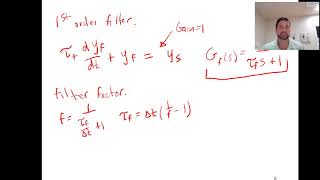 1st order filter.
Gain=1
τf dyf/dt + yf = ys
Gf(s) = 1/(τf s + 1)
filter factor.
f = 1/(τf/Δt + 1) τf = Δt(1/f - 1)